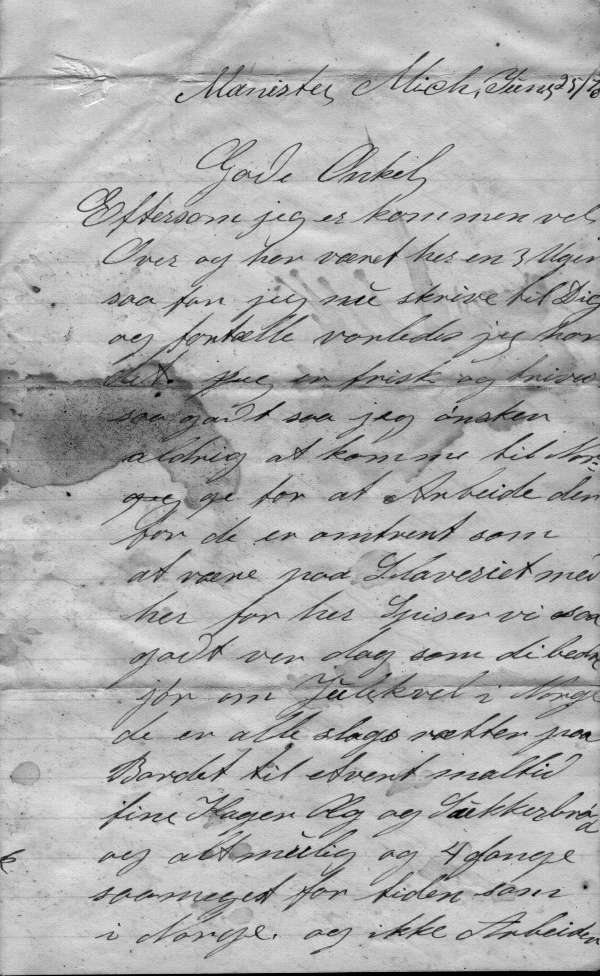 Manistee, Mich, Juni 25/
Gode Onkel,
Eftersom jeg er kommen vel
Over og har været her en 3 Uger
saa faar jeg nu skrive til Dig
og fortælle vorledes jeg har
det. jeg er frisk og trives
saa godt saa jeg ønsker
aldrig at komme til Nor=
ge for at Arbeide der
for de er omtrent som
at være paa Slaveriet med
her for her Spiser vi saa
godt ver dag som di bedre
jør om Julekvel i Norge
de er alle slags rætter paa
Bordet til etvert maaltid
fine Kager Æg og Sukkerbrød
og alt mulig og 4 gange
saameget for tiden som
i Norge. og ikke Arbeider